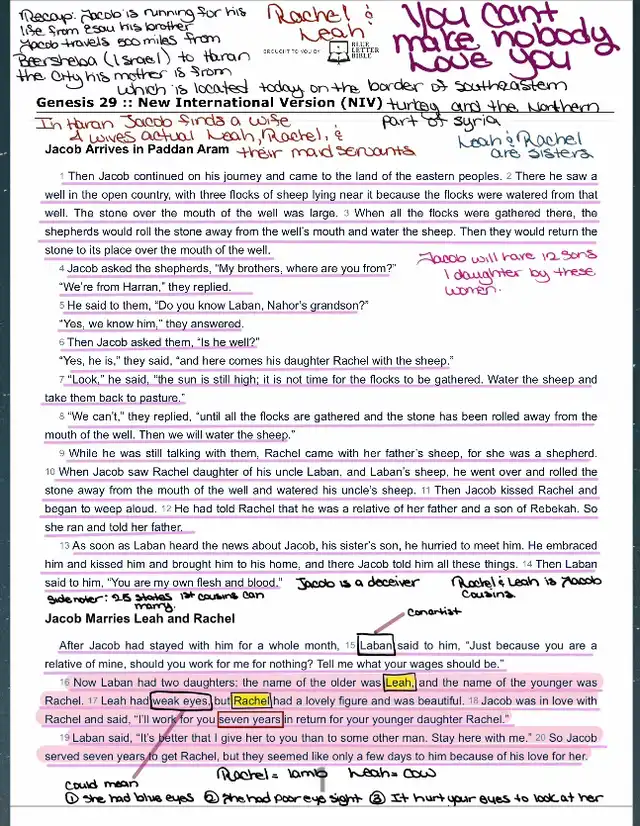 Recap: Jacob is running for his
life from Esau his brother
Jacob travels 500 miles from
Beersheba (Israel) to Haran
the City his mother is from
which is located today on the border of southeastern
turkey and the Northern
part of syria
Rachel &
Leah
BROUGHT TO YOU BY
BLUE
LETTER
BIBLE
You cant
make nobody
love you
Genesis 29 :: New International Version (NIV)
In Haran Jacob finds a wife
4 wives actual Leah, Rachel, &
their maid servants
Leah & Rachel
are sisters
Jacob Arrives in Paddan Aram
1 Then Jacob continued on his journey and came to the land of the eastern peoples. 2 There he saw a
well in the open country, with three flocks of sheep lying near it because the flocks were watered from that
well. The stone over the mouth of the well was large. 3 When all the flocks were gathered there, the
shepherds would roll the stone away from the well's mouth and water the sheep. Then they would return the
stone to its place over the mouth of the well.
4 Jacob asked the shepherds, "My brothers, where are you from?"
"We're from Harran," they replied.
5 He said to them, "Do you know Laban, Nahor's grandson?"
"Yes, we know him," they answered.
6 Then Jacob asked them, "Is he well?"
"Yes, he is," they said, "and here comes his daughter Rachel with the sheep."
Jacob will have 12 sons
1 daughter by these
women.
7 "Look," he said, "the sun is still high; it is not time for the flocks to be gathered. Water the sheep and
take them back to pasture."
8 "We can't," they replied, "until all the flocks are gathered and the stone has been rolled away from the
mouth of the well. Then we will water the sheep."
9 While he was still talking with them, Rachel came with her father's sheep, for she was a shepherd.
10 When Jacob saw Rachel daughter of his uncle Laban, and Laban's sheep, he went over and rolled the
stone away from the mouth of the well and watered his uncle's sheep. 11 Then Jacob kissed Rachel and
began to weep aloud. 12 He had told Rachel that he was a relative of her father and a son of Rebekah. So
she ran and told her father.
13 As soon as Laban heard the news about Jacob, his sister's son, he hurried to meet him. He embraced
him and kissed him and brought him to his home, and there Jacob told him all these things. 14 Then Laban
said to him, "You are my own flesh and blood."
Jacob is a deceiver
Rachel & Leah is Jacob
Cousins.
Side note: 25 states 1st cousins can
marry.
Jacob Marries Leah and Rachel
conartist
After Jacob had stayed with him for a whole month, 15 Laban said to him, "Just because you are a
relative of mine, should you work for me for nothing? Tell me what your wages should be."
16 Now Laban had two daughters: the name of the older was Leah, and the name of the younger was
Rachel. 17 Leah had weak eyes, but Rachel had a lovely figure and was beautiful. 18 Jacob was in love with
Rachel and said, "I'll work for you seven years in return for your younger daughter Rachel."
19 Laban said, "It's better that I give her to you than to some other man. Stay here with me." 20 So Jacob
served seven years to get Rachel, but they seemed like only a few days to him because of his love for her.
Rachel = lamb Leah = cow
could mean
① She had blue eyes ② She had poor eye sight ③ It hurt your eyes to look at her